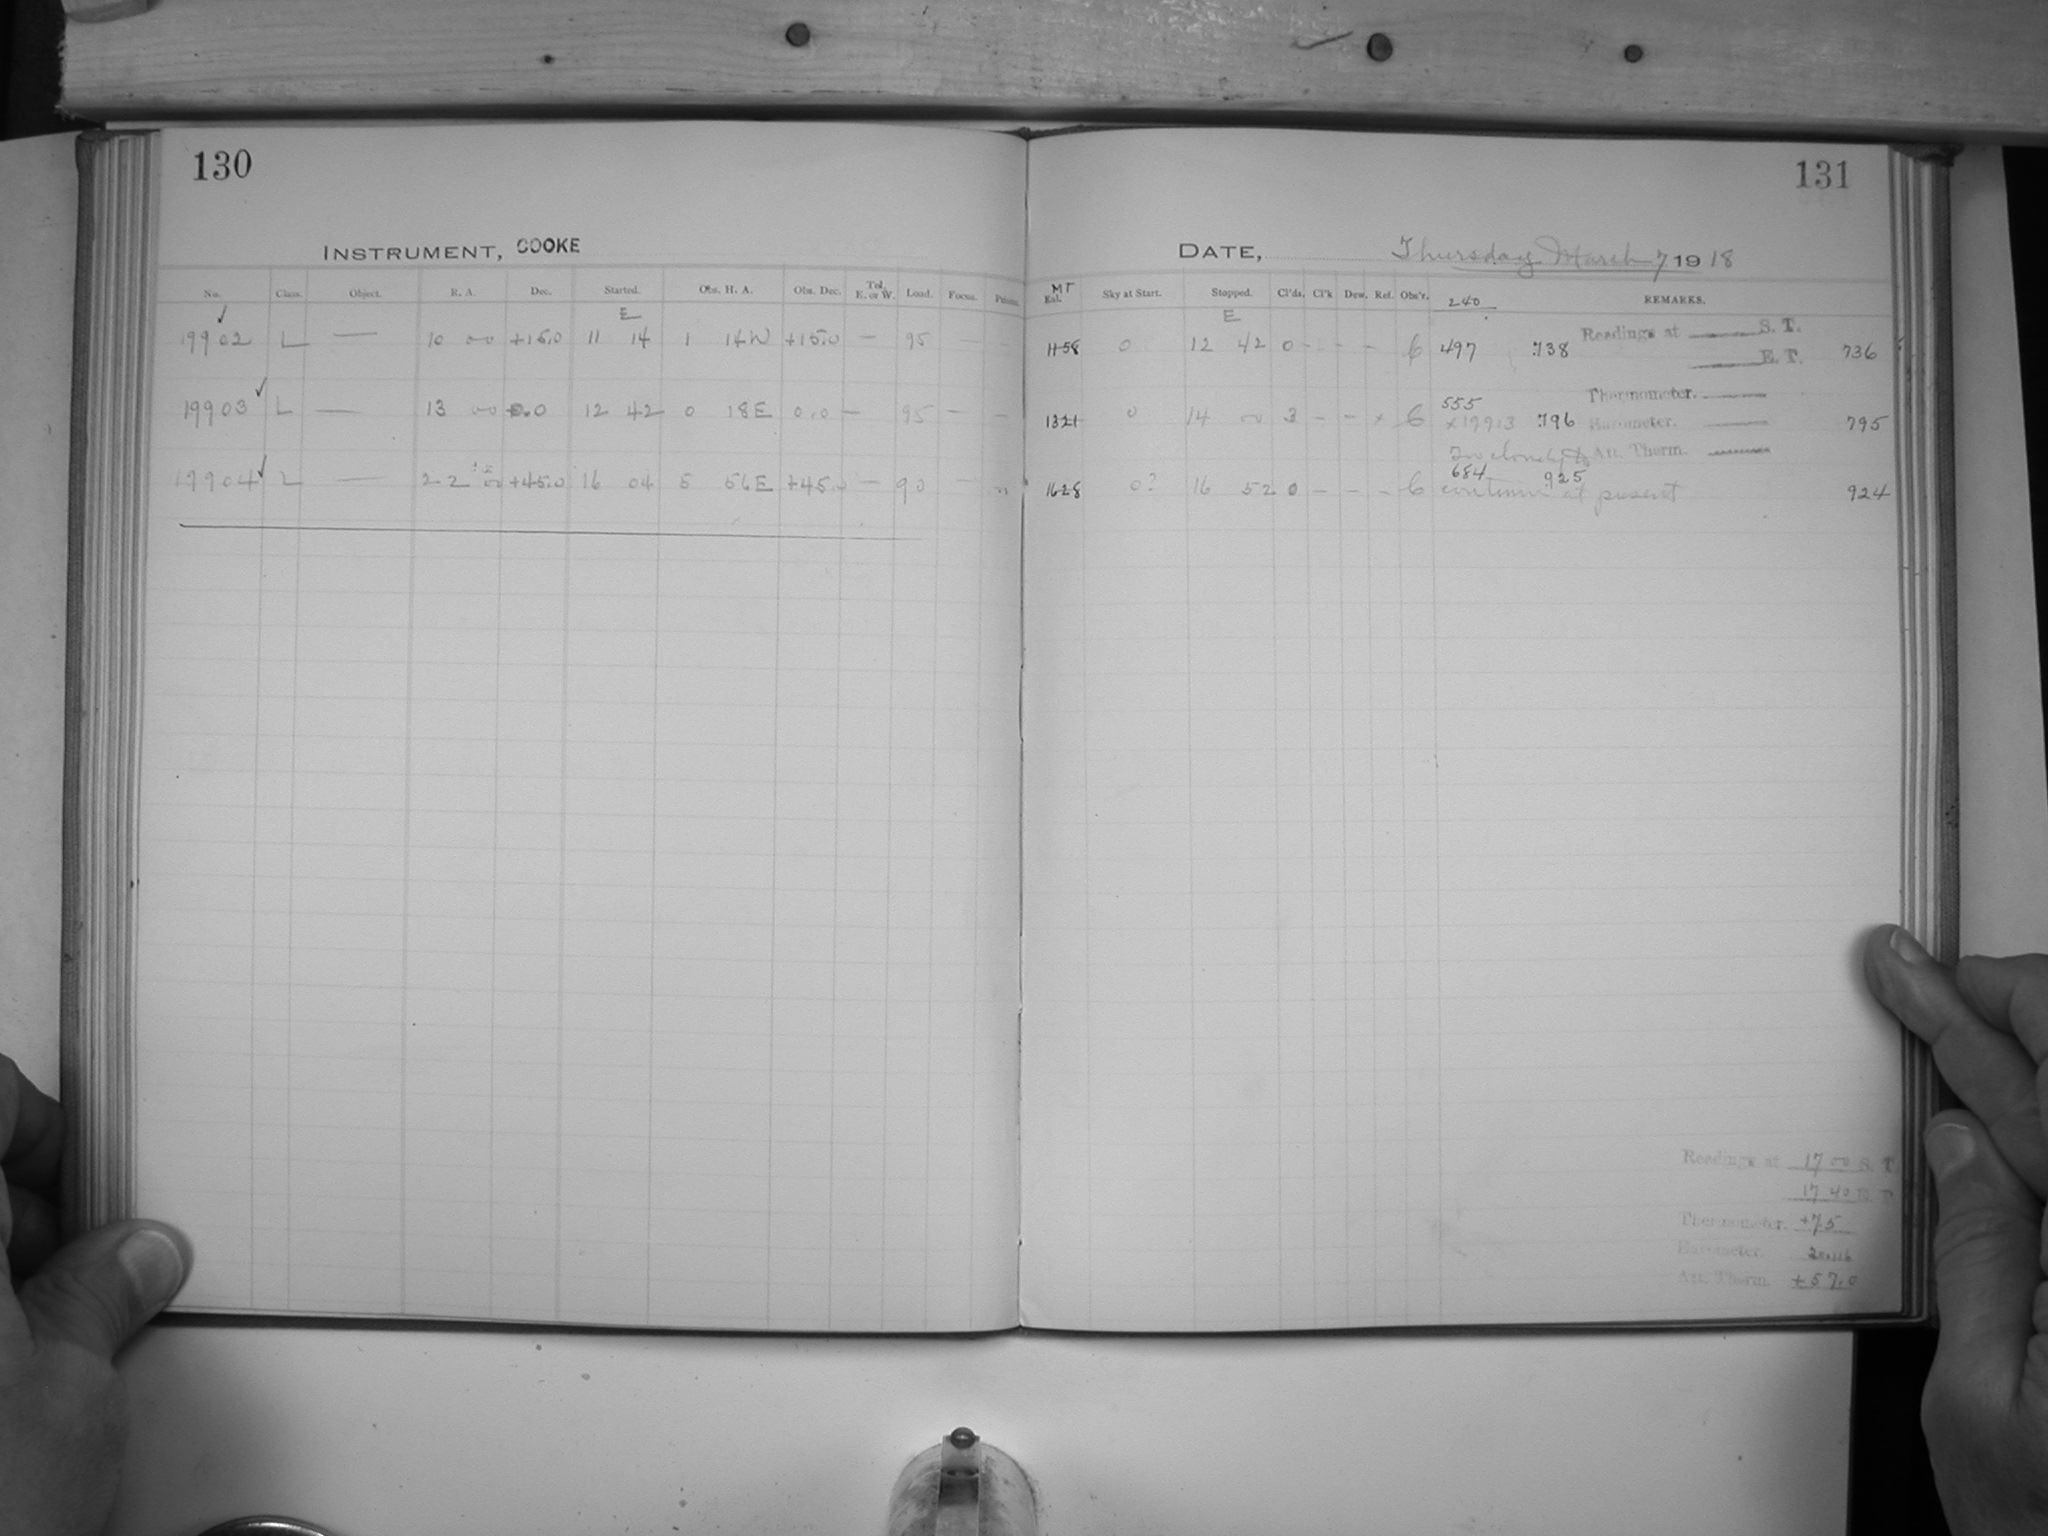 130
INSTRUMENT, COOKE
No. Class. Object. R. A. Dec. Started. Obs. H. A. Obs. Dec. Tel. E. or W. Load. Focus. Prisms.
E
19902 L — 10 00 +15.0 11 14 1 14W +15.0 — 95 — —
19903 L — 13 00 0.0 12 42 0 18E 0.0 — 95 — —
19904 L — 22 00 +45.0 16 04 5 56E +45.0 — 90 —
131
DATE, Thursday March 7 1918
MT
Exl. Sky at Start. Stopped. Cl'ds. Cl'k Dew. Ref. Obs'r. 240 REMARKS.
E
1158 0 12 42 0 - - - - 6 497 .738 Readings at S. T. 736
E. T.
Thermometer.
555
1321 0 14 00 3 - - x 6 .796 Barometer. 795
Too cloudy to Att. Therm.
684 .925
1628 0? 16 52 0 - - - 6 continue at present 924
Readings at 17 00 S. T.
17 40 E. T.
Thermometer. +75
Barometer.
Att. Therm. +57.0